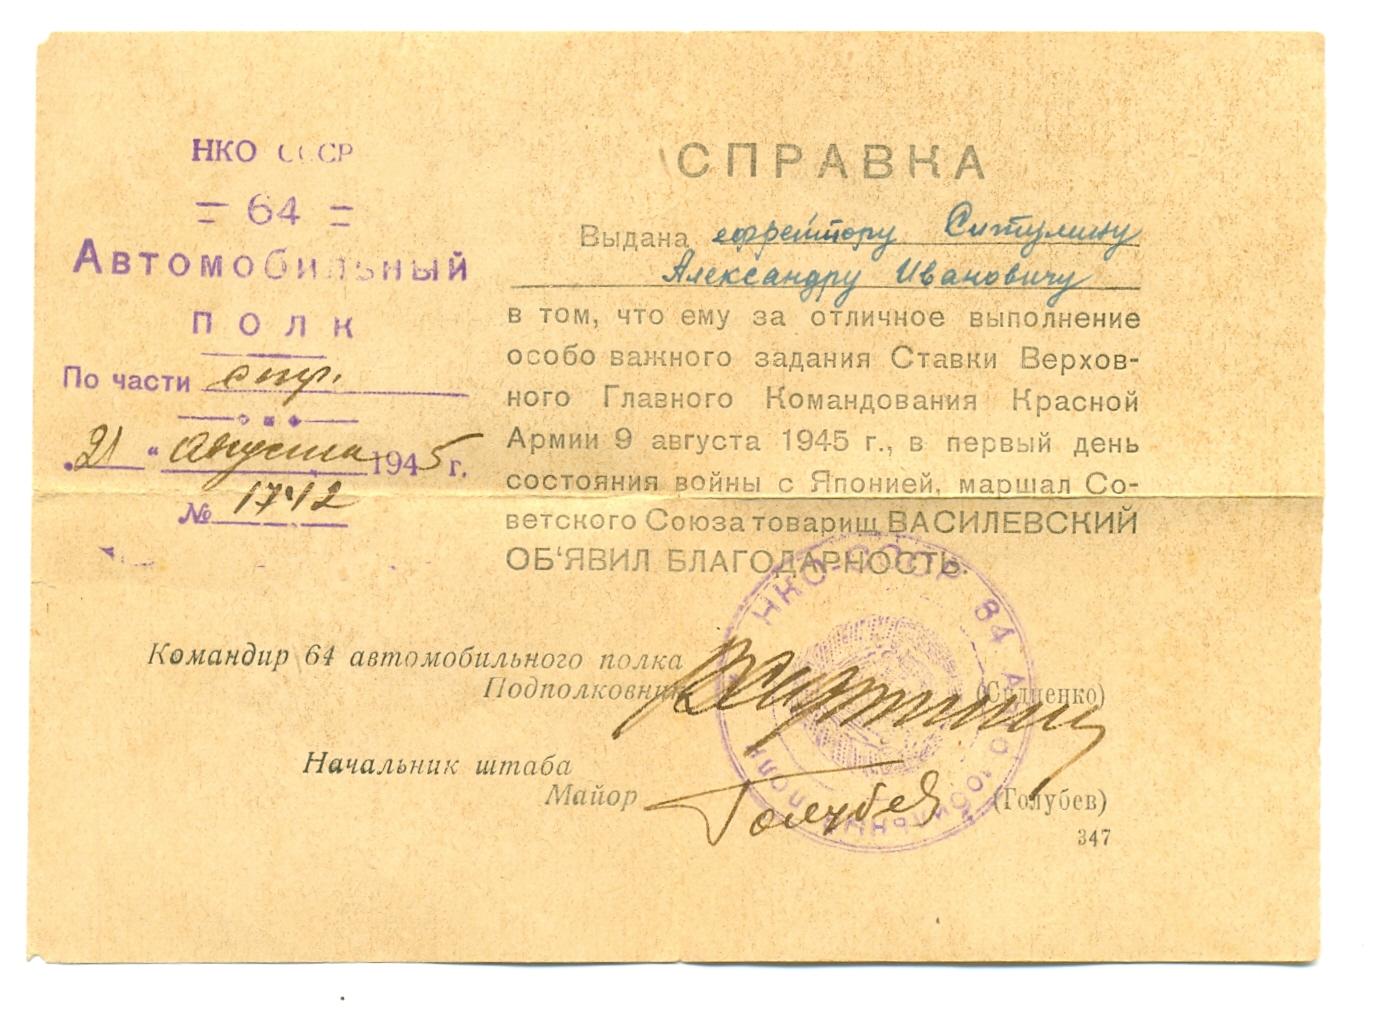 НКО СССР
= 64 =
Автомобильный
ПОЛК
По части стр.
„21 “ Августа 1945 г.
№ 1742
СПРАВКА
Выдана ефрейтору Ситулину
Александру Ивановичу
в том, что ему за отличное выполнение
особо важного задания Ставки Верхов-
ного Главного Командования Красной
Армии 9 августа 1945 г., в первый день
состояния войны с Японией, маршал Со-
ветского Союза товарищ ВАСИЛЕВСКИЙ
ОБ‘ЯВИЛ БЛАГОДАРНОСТЬ.
НКО-СССР 64 АВТОМОБИЛЬНЫЙ ПОЛК
Командир 64 автомобильного полка
Подполковник
Начальник штаба
Майор Голубев (Голубев)
347